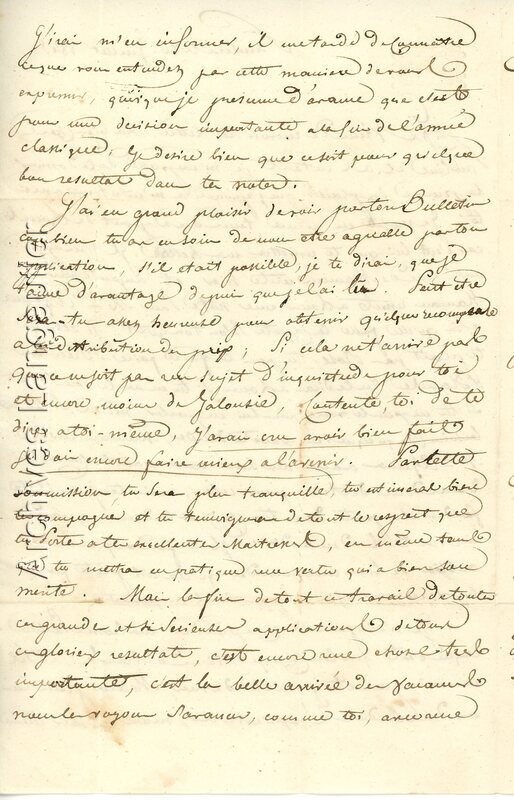 J'irai m'en informer, il me tarde de connaitre
ce que vous entendez par cette maniere de vous
exprimer, quoique je presume d'avance que c'est
pour une decision importante a la fin de l'année
classique, je desire bien que ce soit pour quelque
bon resultat dans tes notes.
J'ai eu grand plaisir de voir par ton Bulletin
combien tu as eu soin de nous etre agreable par ton
application, s'il etait possible, je te dirai, que je
t'aime d'avantage depuis que je l'ai lu. Peut etre
sera-tu assez heureuse pour obtenir quelque recompense
a la distribution des prix; Si cela n'arrive pas
que ce ne soit pas un sujet d'inquietude pour toi
et encore moins de Jalousie, Contente, toi de te
dire a toi-même, J'avais cru avoir bien fait
je vais encore faire mieux a l'avenir. Par cette
soumission tu sera plus tranquille, tu estimeras bien
tes compagnes et tu temoigneras de tout le respect que
tu porte a tes excellentes Maitresses, en même tems
tu mettra en pratique une vertu qui a bien son
merite. Mais la fin de tout ce travail de toute
ces grandes et si Serieuses applications de tous
ces glorieux resultats, c'est encore une chose très
importante, c'est la belle arrivée des vacances
nous les voyons s'avancer, comme toi, avec une
Archives Langlade